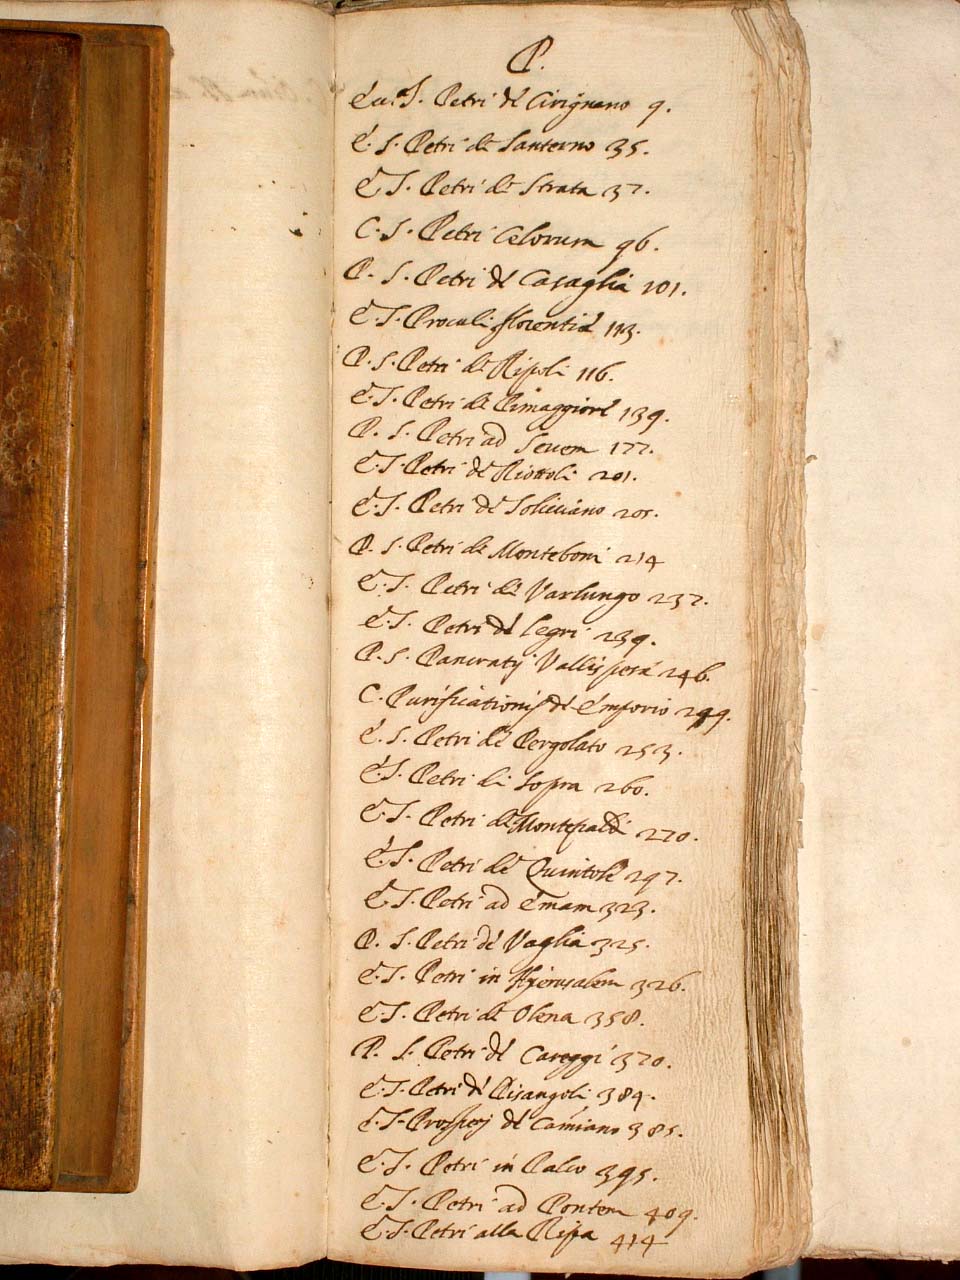 P.
Ecc. S. Petri de Cirignano 9.
E. S. Petri de Santerno 35.
E. S. Petri de Strata 37.
C. S. Petri Celorum 96.
P. S. Petri de Casaglia 101.
E. S. Proculi florentiæ 113.
P. S. Petri de Ripoli 116.
E. S. Petri de Rimaggiore 139.
P. S. Petri ad Sevem 177.
E. S. Petri de 201.
E. S. Petri de Soliciano 205.
P. S. Petri de Monteboni 214
E. S. Petri de Varlungo 237.
E. S. Petri de Legri 239.
P. S. Pancratij Vallispesæ 246.
C. Purificationis de Emporio 249.
E. S. Petri de Pergolato 253.
E. S. Petri di Sopra 260.
E. S. Petri de Montepaldi 270.
E. S. Petri de Quintole 297.
E. S. Petri ad Emam 323.
P. S. Petri de Vaglia 325.
E. S. Petri in Hjerusalem 326.
E. S. Petri de Olena 358.
P. S. Petri de Careggi 370.
E. S. Petri de Pisangoli 384.
E. S. Prosperj de Camiano 385.
E. S. Petri in Palco 395.
E. S. Petri ad Pontem 409.
E. S. Petri alla Ripa 414